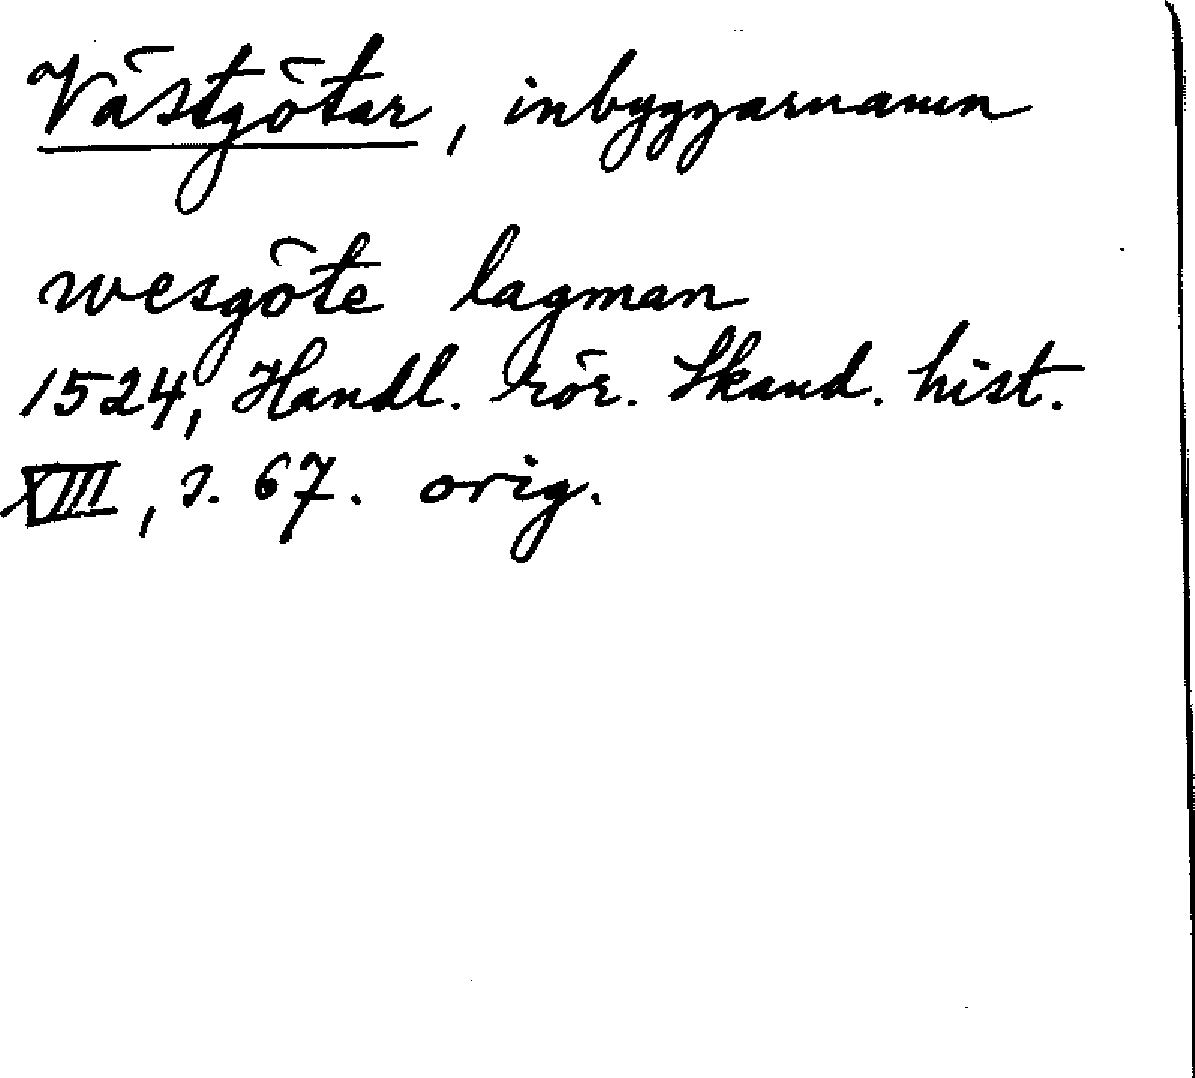 Västgötar, inbyggarnamn
wesgöte lagman
1524, Handl. rör. Skand. hist.
XIII, s. 67. orig.